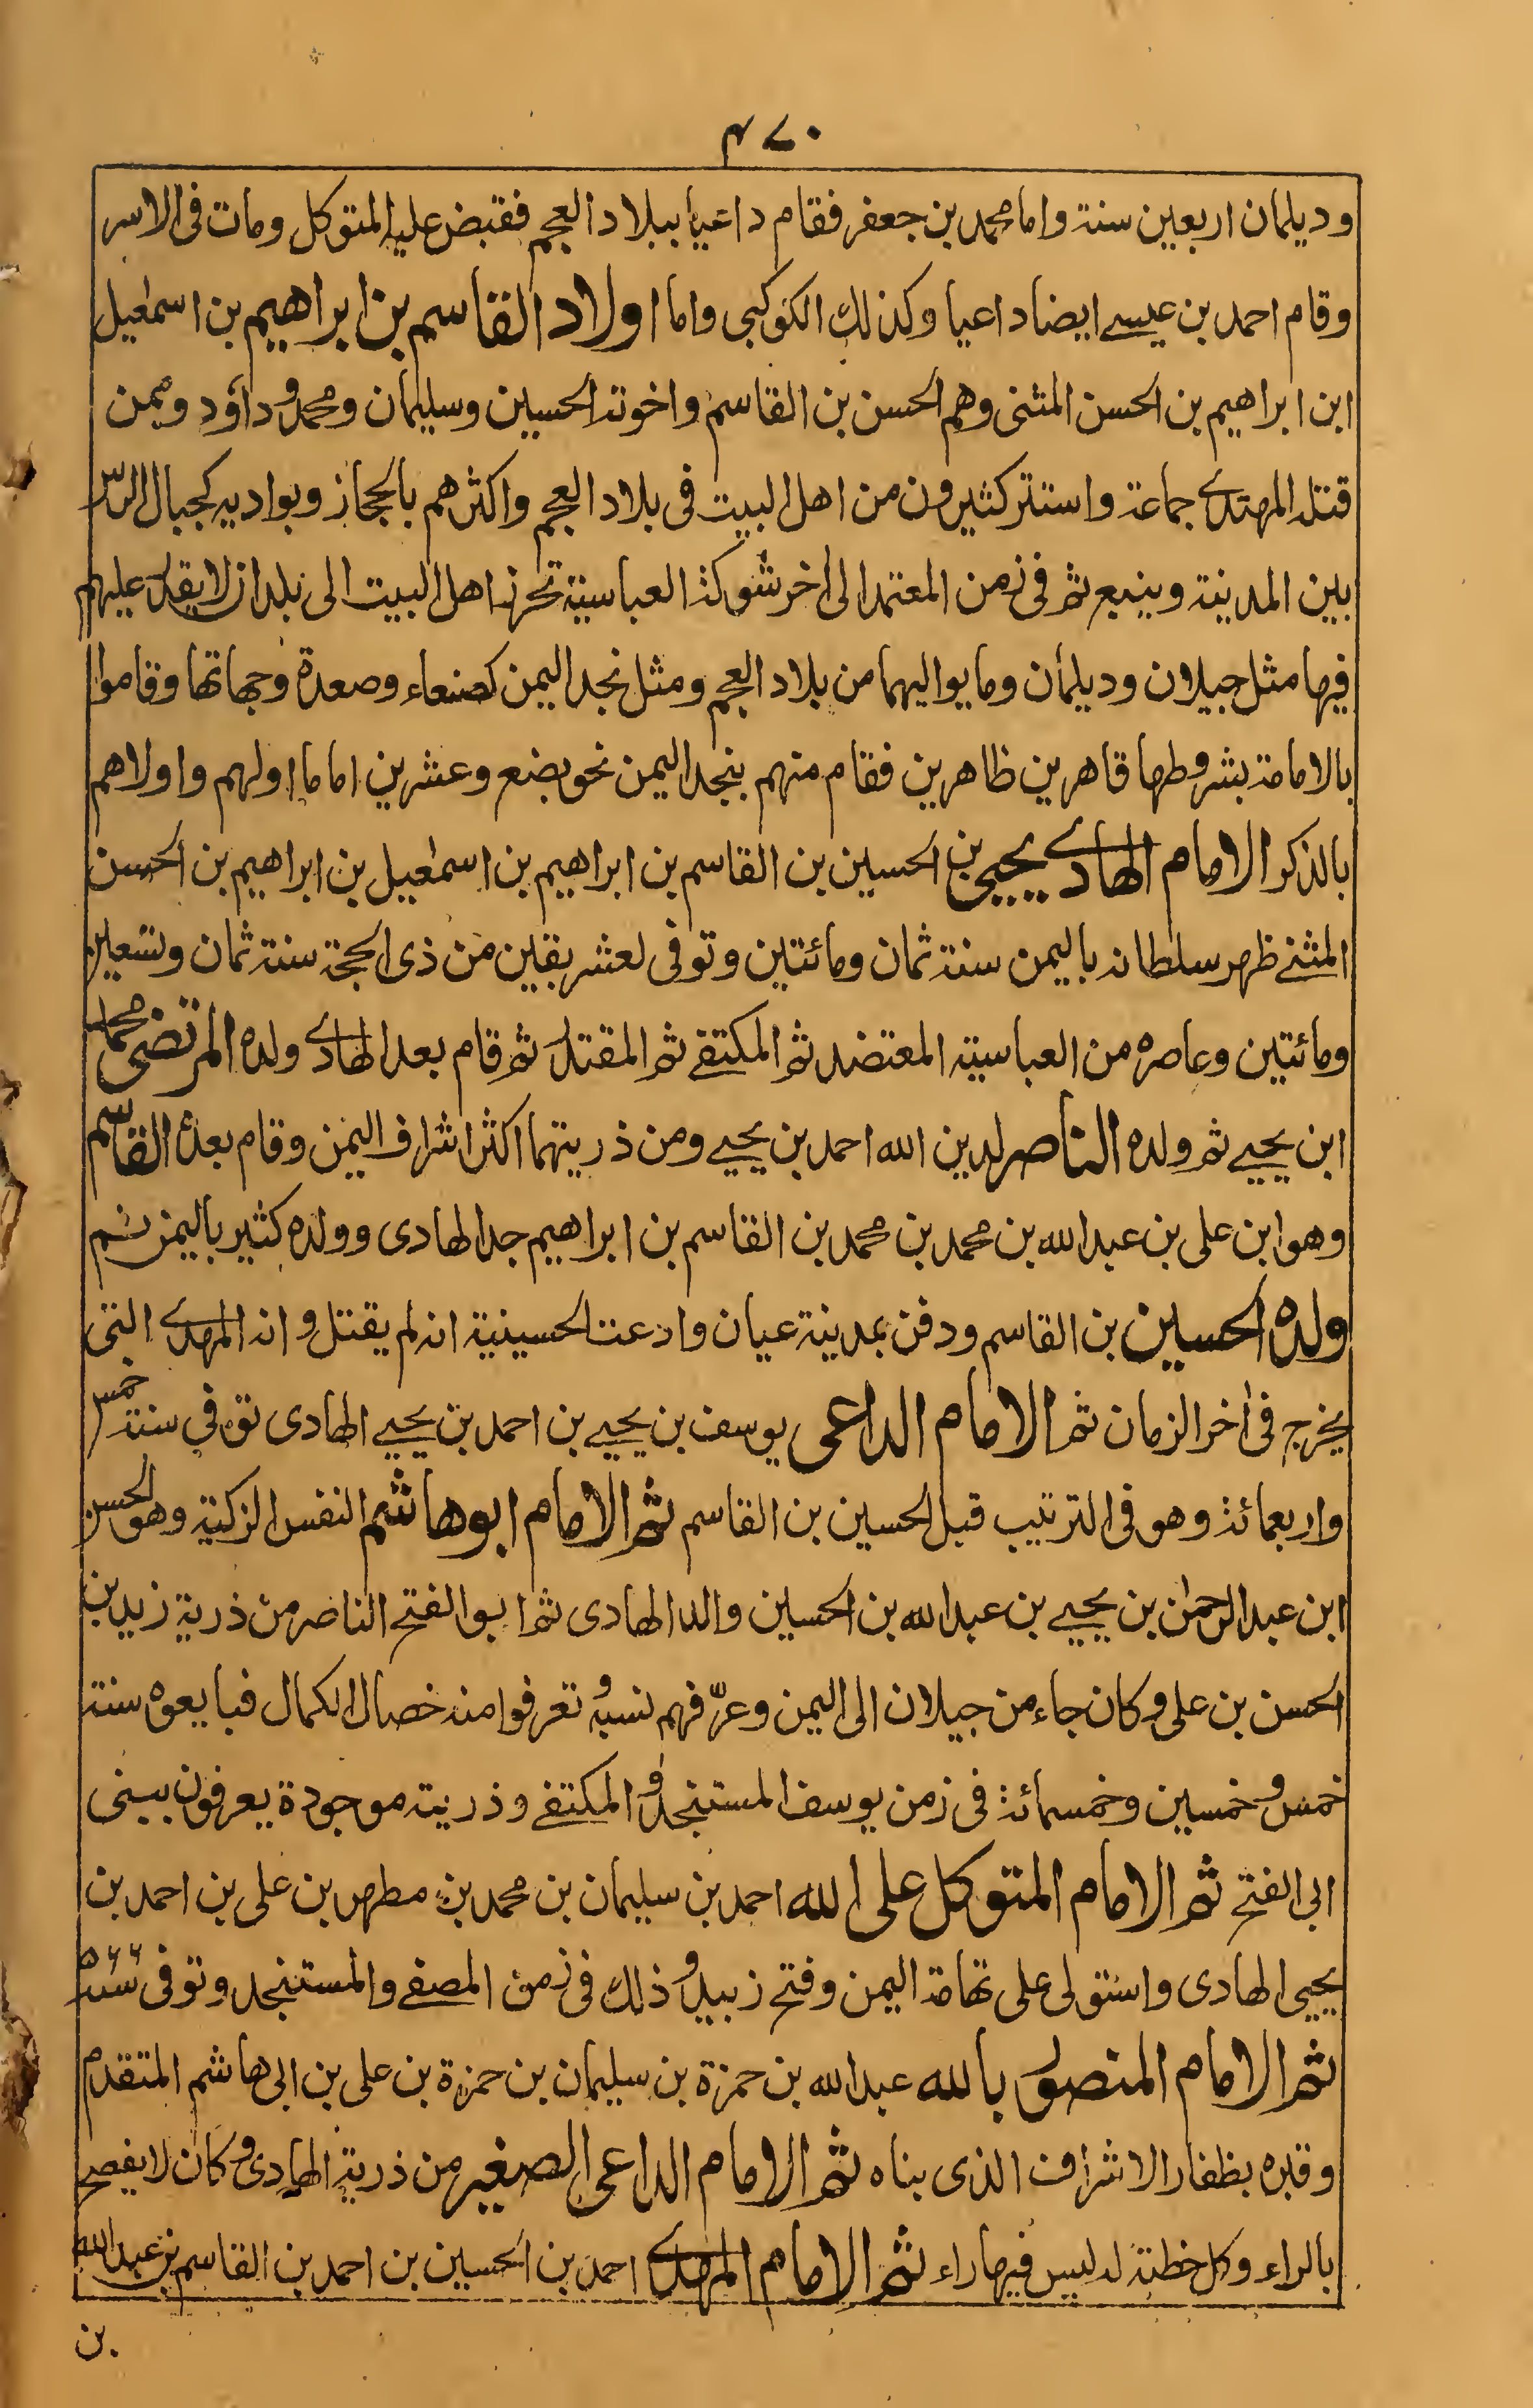 ٤٧٠
وديلمان اربعين سنة واما محمد بن جعفر فقام داعيا ببلاد العجم فقبض عليه المتوكل ومات فى الاسر
وقام احمد بن عيسے ايضا داعيا وكذلك الكوكبى واما اولاد القاسم بن ابراهيم بن اسمٰعيل
ابن ابراهيم بن الحسن المثنى وهم الحسن بن القاسم واخوته الحسين وسليمان ومحمد وداؤد وممن
قتله المهتدے جماعة واستتر كثيرون من اهل البيت فى بلاد العجم واكثرهم بالحجاز وبواديه كجبال الرسّ
بين المدينة وينبع ثم فى زمن المعتمد الى اٰخر شوكة العباسية تحرز اهل البيت الى بلدان لا يقدر عليهم
فيها مثل جيلان وديلمان وما يواليهما من بلاد العجم ومثل نجد اليمن كصنعاء وصعدة وجهاتها وقاموا
بالامامة بشروطها قاهرين ظاهرين فقام منهم بنجد اليمن نحو بضع وعشرين اماما اولهم واولاهم
بالذكر الامام الهادے يحيى بن الحسين بن القاسم بن ابراهيم بن اسمٰعيل بن ابراهيم بن الحسن
المثنے ظهر سلطانه باليمن سنة ثمان ومائتين وتوفى لعشر بقين من ذى الحجة سنة ثمان وتسعين
ومائتين وعاصره من العباسية المعتضد ثم المكتفے ثم المقتدر ثم قام بعد الهادے ولده المرتضى محمد
ابن يحيے ثم ولده الناصر لدين الله احمد بن يحيے ومن ذريتهما اكثر اشراف اليمن وقام بعده القاسم
وهو ابن على بن عبد الله بن محمد بن محمد بن القاسم بن ابراهيم جد الهادى وولده كثير باليمن ثم
ولده الحسين بن القاسم ودفن بمدينة عيان وادعت الحسينية انه لم يقتل وانه المهدے التى
يخرج فى اٰخر الزمان ثم الامام الداعى يوسف بن يحيے بن احمد بن يحيے الهادى توفي سنة خمس
واربعمائة وهو فى الترتيب قبل الحسين بن القاسم ثم الامام ابو هاشم النفس الزكية وهو الحسن
ابن عبد الرحمٰن بن يحيے بن عبد الله بن الحسين والد الهادى ثم ابو الفتح الناصر من ذرية زيد بن
الحسن بن على وكان جاء من جيلان الى اليمن وعرّفهم نسبه وتعرفوا منه خصال الكمال فبايعوه سنة
خمس وخمسين وخمسمائة فى زمن يوسف المستنجد والمكتفے وذريته موجودة يعرفون ببنى
ابى الفتح ثم الامام المتوكل على الله احمد بن سليمان بن محمد بن مطهر بن على بن احمد بن
يحيى الهادى واستولى على تهامة اليمن وفتح زبيد وذلك فى زمن المصفے والمستنجد وتوفى سنة ٥٦٦
ثم الامام المنصور بالله عبد الله بن حمزة بن سليمان بن حمزة بن على بن ابى هاشم المتقدم
وقبره بظفار الاشراف الذى بناه ثم الامام الداعى الصغير من ذرية الهادى وكان لا يفصح
بالراء وكل خطبة له ليس فيها راء ثم الامام المهدے احمد بن الحسين بن احمد بن القاسم بن عبد الله
بن